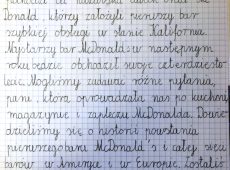 Donald, którzy założyli pierwszy bar
szybkiej obsługi w stanie Kalifornia
bar McDonald's w następnym
roku będzie obchodził swoje czterdziesto-
lecie. Mogliśmy zadawać różne pytania,
pani, która oprowadzała nas po kuchni
magazynie i zapleczu McDonalda. Dowie-
dzieliśmy się o historii powstania
pierwszego baru McDonald's i całej sieci
barów w Ameryce i w Europie. Zostaliś